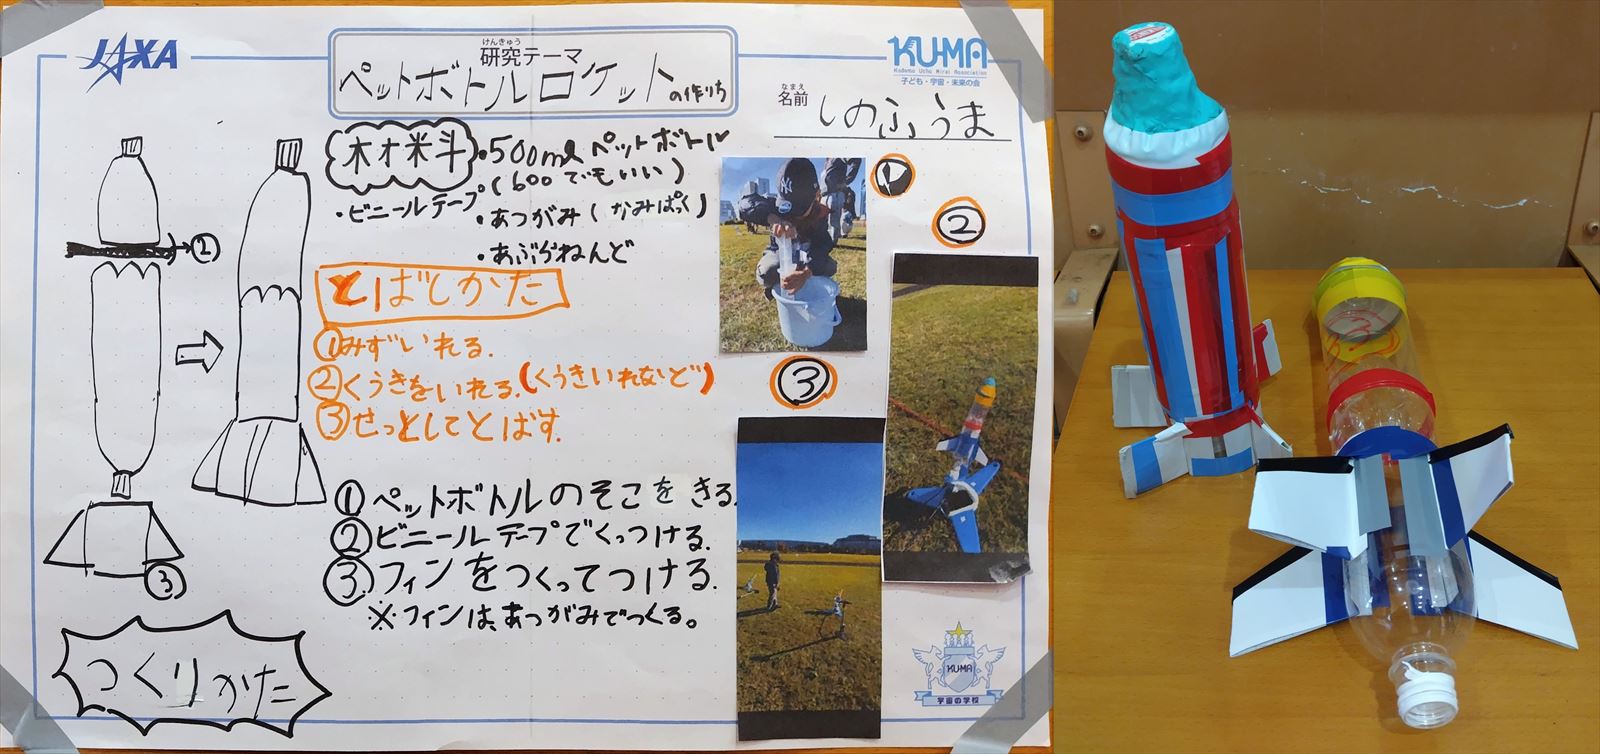 JAXA
けんきゅう
研究テーマ
ペットボトルロケットの作り方
KUMA
Kodomo Uchu Mirai Association
子ども・宇宙・未来の会
なまえ
名前
しのふうま
材料
・500mlペットボトル
(600でもいい)
・ビニールテープ
・あつがみ(なみぱっく)
・あぶらねんど
とばしかた
①みずいれる.
②くうきをいれる.(くうきいれないど)
③せっとしてとばす.
①ペットボトルのそこをきる.
②ビニールテープでくっつける.
③フィンをつくってつける.
※フィンは、あつがみでつくる。
つくりかた
②
③
①
②
③
KUMA
宇宙の学校